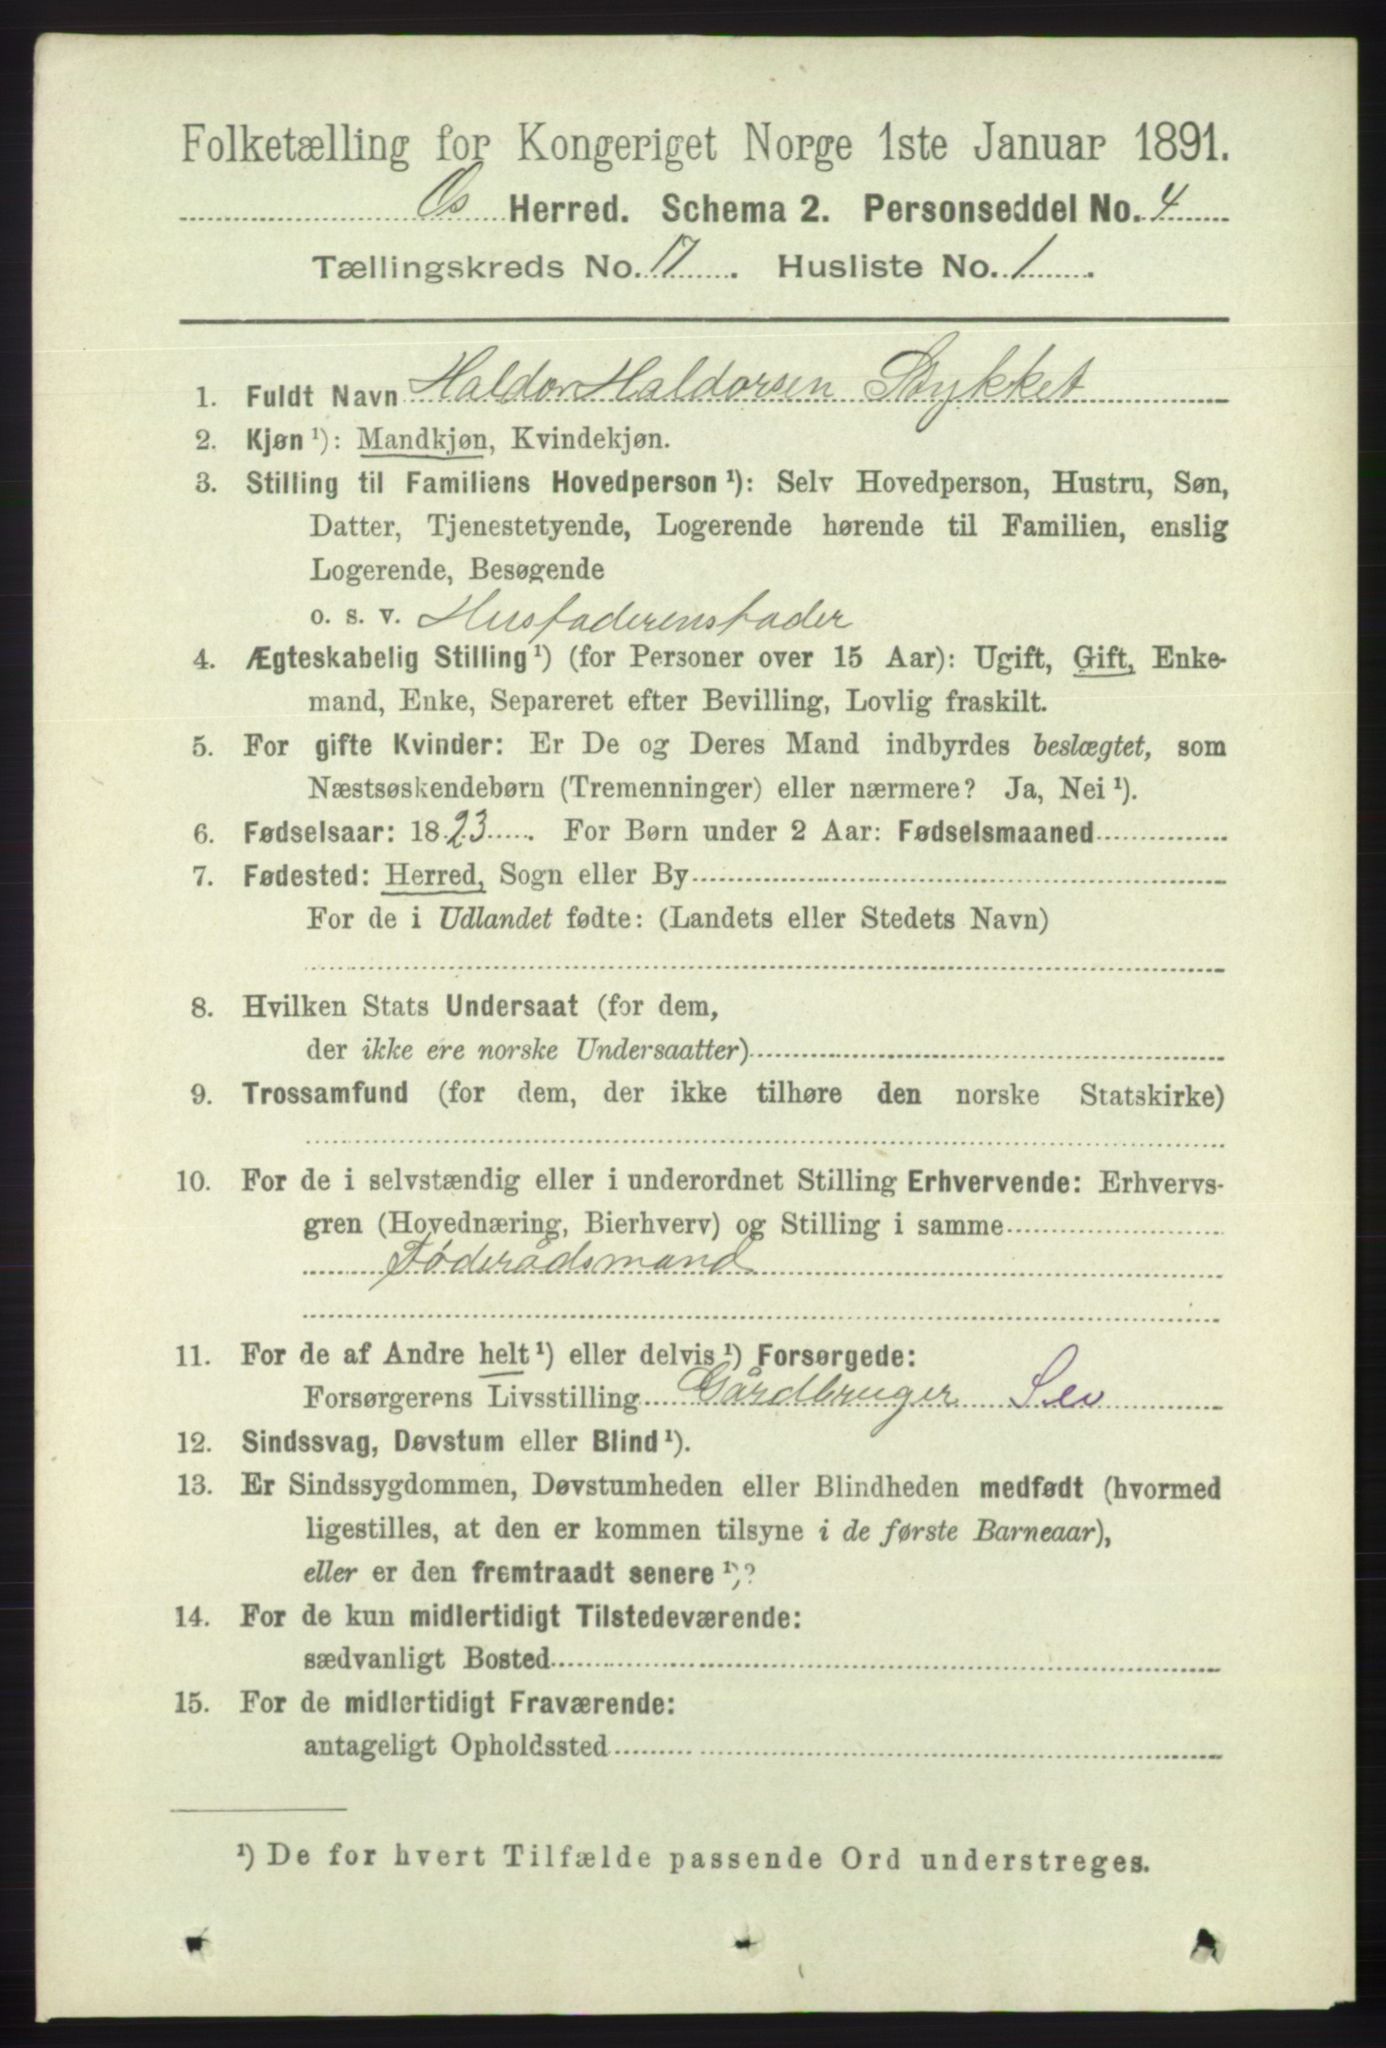 Folketælling for Kongeriget Norge 1ste Januar 1891.
Os Herred. Schema 2. Personseddel No. 4
Tællingskreds No. 17. Husliste No. 1.
1. Fuldt Navn Haldor Haldorsen Stykket
2. Kjøn ¹): Mandkjøn, Kvindekjøn.
3. Stilling til Familiens Hovedperson ¹): Selv Hovedperson, Hustru, Søn,
Datter, Tjenestetyende, Logerende hørende til Familien, enslig
Logerende, Besøgende
o. s. v. Husfaderensfader
4. Ægteskabelig Stilling ¹) (for Personer over 15 Aar): Ugift, Gift, Enke-
mand, Enke, Separeret efter Bevilling, Lovlig fraskilt.
5. For gifte Kvinder: Er De og Deres Mand indbyrdes beslægtet, som
Næstsøskendebørn (Tremenninger) eller nærmere? Ja, Nei ¹).
6. Fødselsaar: 1823. For Børn under 2 Aar: Fødselsmaaned
7. Fødested: Herred, Sogn eller By
For de i Udlandet fødte: (Landets eller Stedets Navn)
8. Hvilken Stats Undersaat (for dem,
der ikke ere norske Undersaatter)
9. Trossamfund (for dem, der ikke tilhøre den norske Statskirke)
10. For de i selvstændig eller i underordnet Stilling Erhvervende: Erhvervs-
gren (Hovednæring, Bierhverv) og Stilling i samme
Føderådsmand
11. For de af Andre helt ¹) eller delvis ¹) Forsørgede:
Forsørgerens Livsstilling Gårdbruger Selv
12. Sindssvag, Døvstum eller Blind ¹).
13. Er Sindssygdommen, Døvstumheden eller Blindheden medfødt (hvormed
ligestilles, at den er kommen tilsyne i de første Barneaar),
eller er den fremtraadt senere ¹)?
14. For de kun midlertidigt Tilstedeværende:
sædvanligt Bosted
15. For de midlertidigt Fraværende:
antageligt Opholdssted
¹) De for hvert Tilfælde passende Ord understreges.